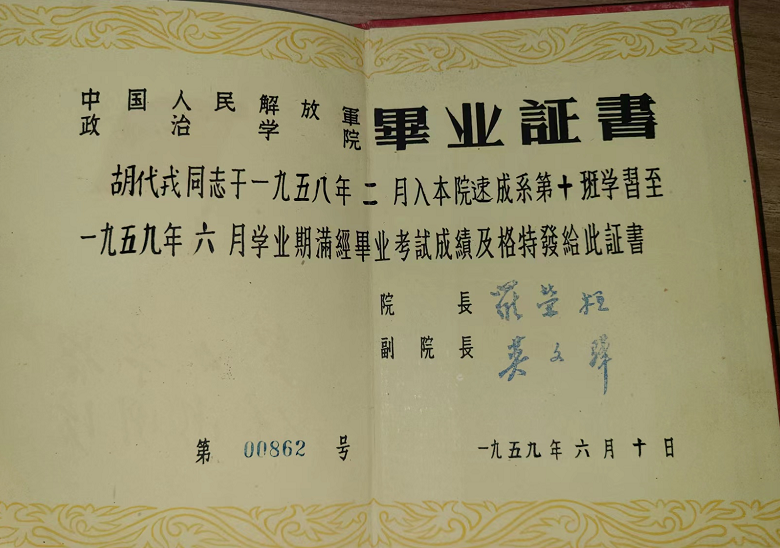 中国人民解放軍
政治学院
畢业証書
胡代戎同志于一九五八年二月入本院速成系第十班学習至
一九五九年六月学业期滿經畢业考試成績及格特發給此証書
院長 羅榮桓
副院長 莫文驊
第 00862 号
一九五九年六月十日